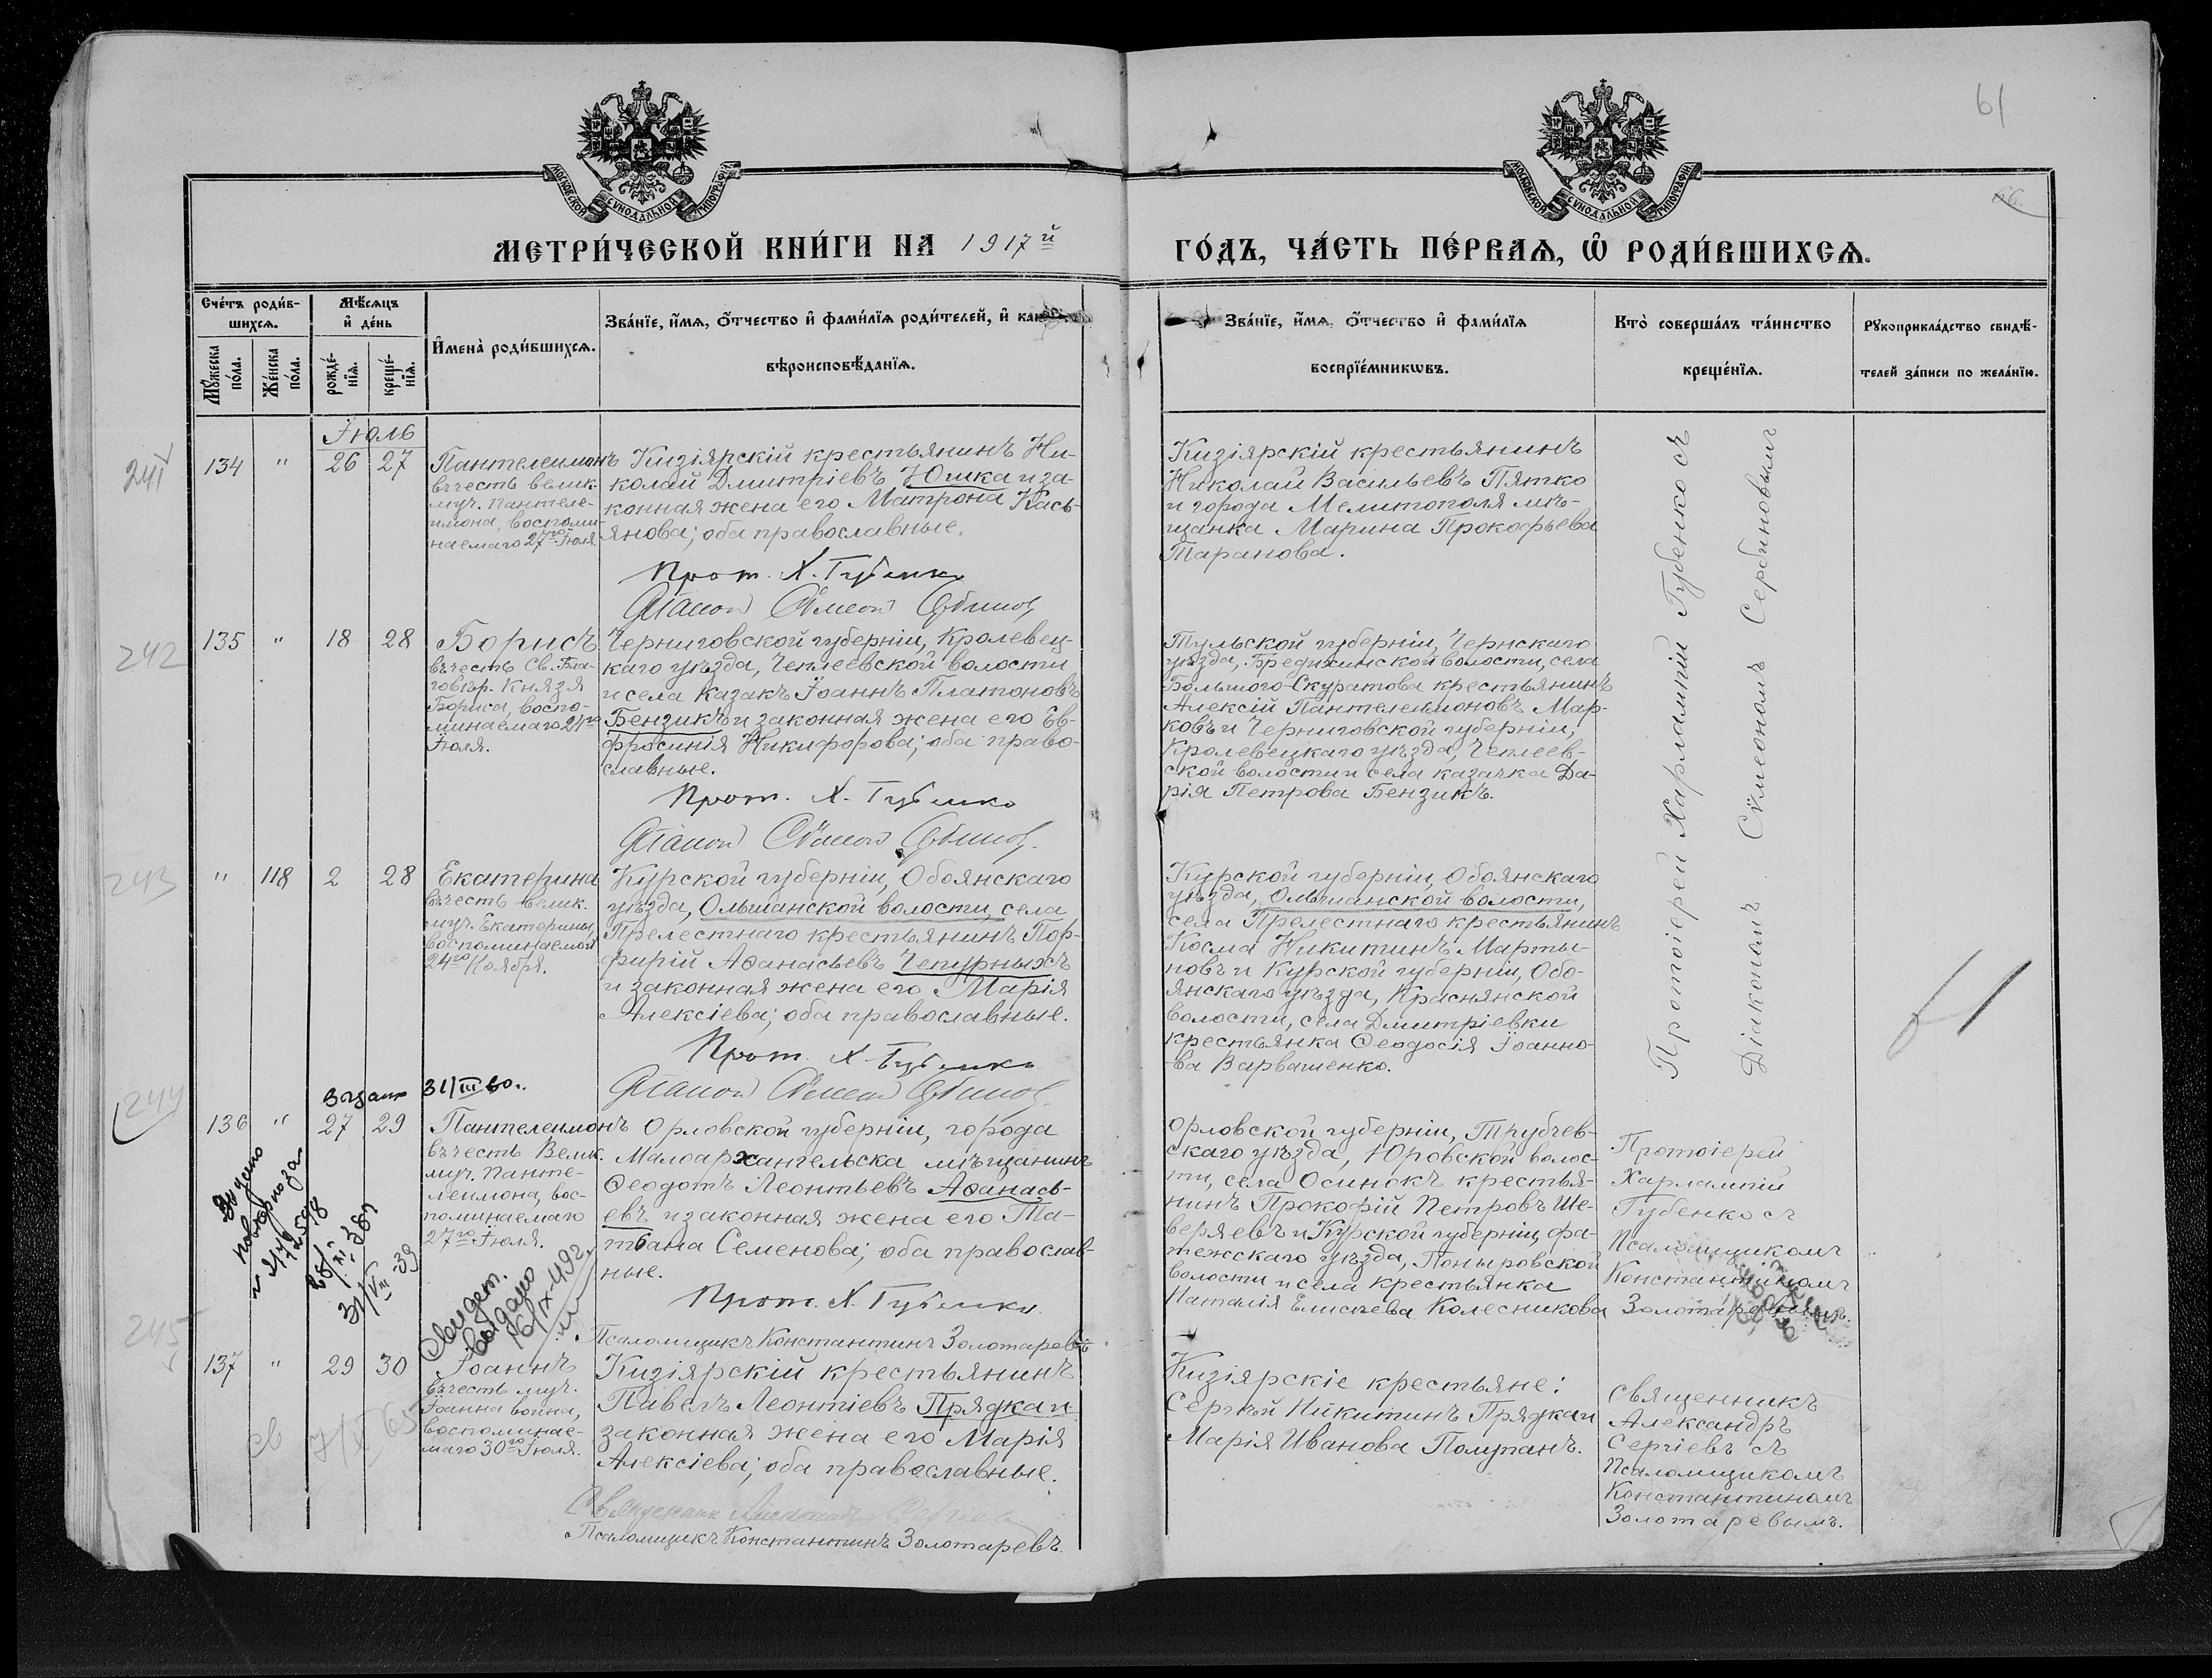 61
66.
МОСКОВСКОЙ СѴНОДАЛЬНОЙ ТИПОГРАФІИ
МОСКОВСКОЙ СѴНОДАЛЬНОЙ ТИПОГРАФІИ
МЕТРИ́ЧЕСКОЙ КНИ́ГИ НА 1917й
ГО́ДЪ, ЧА́СТЬ ПЕ́РВАѦ, Ѡ҆ РОДИ́ВШИХСѦ.
Сче́тъ роди́в-
шихсѧ.
Мѣ́сѧцъ
и҆ де́нь
Мꙋ́жеска по́ла.
Же́нска по́ла.
рожде́-нїѧ.
креще́-нїѧ.
И҆мена̀ роди́вшихсѧ.
Зва́нїе, и҆́мѧ, ѻ҆́тчество и҆ фами́лїѧ роди́телей, и҆ како́гѡ
вѣроисповѣ́данїѧ.
Зва́нїе, и҆́мѧ, ѻ҆́тчество и҆ фами́лїѧ
воспрїе́мникѡвъ.
Кто̀ соверша́лъ та́инство
креще́нїѧ.
Рꙋкоприкла́дство свидѣ́-
телей за́писи по жела́нїю.
Іюль
241
134 " 26 27
Пантелеимонъ
въ честь велик.
муч. Пантеле-
имона, воспоми-
наемаго 27го Іюля.
Кизіярскій крестьянинъ Ни-
колай Дмитріевъ Юшка и за-
конная жена его Матрона Кась-
янова; оба православные.
Прот. Х. Губенко
Діакон Сѵмеон Сербинов
Кизіярскій крестьянинъ
Николай Васильевъ Пятко
и города Мелитополя мѣ-
щанка Марина Прокофьева
Таранова.
Протоіерей Харлампій Губенко съ
Діакономъ Сѵмеономъ Сербиновымъ
242
135 " 18 28
Борисъ
въ честь Св. Бла-
говѣр. Князя
Бориса, воспо-
минаемаго 24го
Іюля.
Черниговской губерніи, Кролевец-
каго уѣзда, Чеплеевской волости
и села казакъ Іоаннъ Платоновъ
Бензикъ и законная жена его Ев-
фросинія Никифорова; оба право-
славные.
Прот. Х. Губенко
Діакон Сѵмеон Сербинов.
Тульской губерніи, Чернскаго
уѣзда, Бредихинской волости, села
Большого-Скуратова крестьянинъ
Алексій Пантелеимоновъ Мар-
ковъ и Черниговской губерніи,
Кролевецкаго уѣзда, Чеплеев-
ской волости и села казачка Да-
рія Петрова Бензикъ.
243
" 118 2 28
Екатерина
въ честь велик.
муч. Екатерины,
воспоминаемой
24го Ноября.
Курской губерніи, Обоянскаго
уѣзда, Ольшанской волости, села
Прелестнаго крестьянинъ Пор-
фирій Аѳанасьевъ Чепурныхъ
и законная жена его Марія
Алексіева; оба православные.
Прот. Х. Губенко
Діакон Сѵмеон Сербинов.
Курской губерніи, Обоянскаго
уѣзда, Ольшанской волости,
села Прелестнаго крестьянинъ
Косма Никитинъ Марты-
новъ и Курской губерніи, Обо-
янскаго уѣзда, Краснянской
волости, села Дмитріевки
крестьянка Ѳеодосія Іоанно-
ва Варвашенко.
31/III 60.
244
136 " 27 29
Пантелеимонъ
въ честь Велик.
муч. Панте-
леимона, вос-
поминаемаго
27го Іюля.
Орловской губерніи, города
Малоархангельска мѣщанинъ
Ѳеодотъ Леонтьевъ Аѳанась-
евъ и законная жена его Та-
тіана Семенова; оба православ-
ные.
Прот. Х. Губенко.
Псаломщикъ Константинъ Золотаревъ
Орловской губерніи, Трубчев-
скаго уѣзда, Юровской волос-
ти, села Осинокъ крестья-
нинъ Прокофій Петровъ Ше-
веряевъ и Курской губерніи, Фа-
тежскаго уѣзда, Поныровской
волости и села крестьянка
Наталія Елисѣева Колесникова
Протоіерей
Харлампій
Губенко съ
Псаломщикомъ
Константиномъ
Золотаревымъ.
Выдано
повторно за
Свидет.
выдано
245
137 " 29 30
Іоаннъ
въ честь муч.
Іоанна воина,
воспоминае-
маго 30го Іюля.
Кизіярскій крестьянинъ
Павелъ Леонтіевъ Прядка и
законная жена его Марія
Алексіева; оба православные.
Священник Александр Сергіев
Псаломщикъ Константинъ Золотаревъ
Кизіярскіе крестьяне:
Сергѣй Никитинъ Прядка и
Марія Иванова Полупанъ.
Священникъ
Александръ
Сергіевъ съ
Псаломщикомъ
Константиномъ
Золотаревымъ.